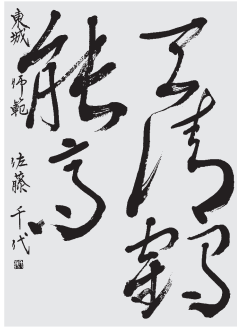 天清鶴
能高
東城 師範 佐藤 千代